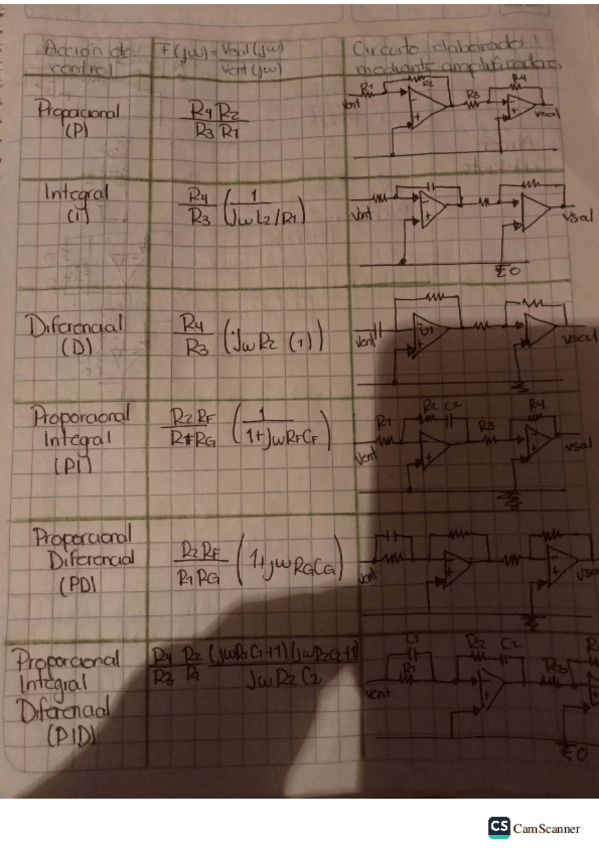 Acción de control
F(jw) = Vsal(jw) / Vent(jw)
Circuito elaborado mediante amplificadores
Proporcional
(P)
R4 R2 / R3 R1
R1 R2 R3 R4
Vent Vsal
Integral
(i)
R4 / R3 (1 / jw L2/R1)
Vent Vsal
0
Diferencial
(D)
R4 / R3 (jw R2 (1))
Vent U1 Vsal
Proporcional
Integral
(PI)
R2 RF / R1 RG (1 / 1+jwRFCF)
R1 R2 C2 R3 R4
Vent Vsal
Proporcional
Diferencial
(PD)
R2 RF / R1 RG (1+jw RGCG)
Vent Vsal
Proporcional
Integral
Diferencial
(PID)
R4 / R3 R2 / R1 (jwR1C1+1)(jwR2C2+1) / jw R2 C2
C1 R1 R2 C2 R3
Vent
0
CS CamScanner